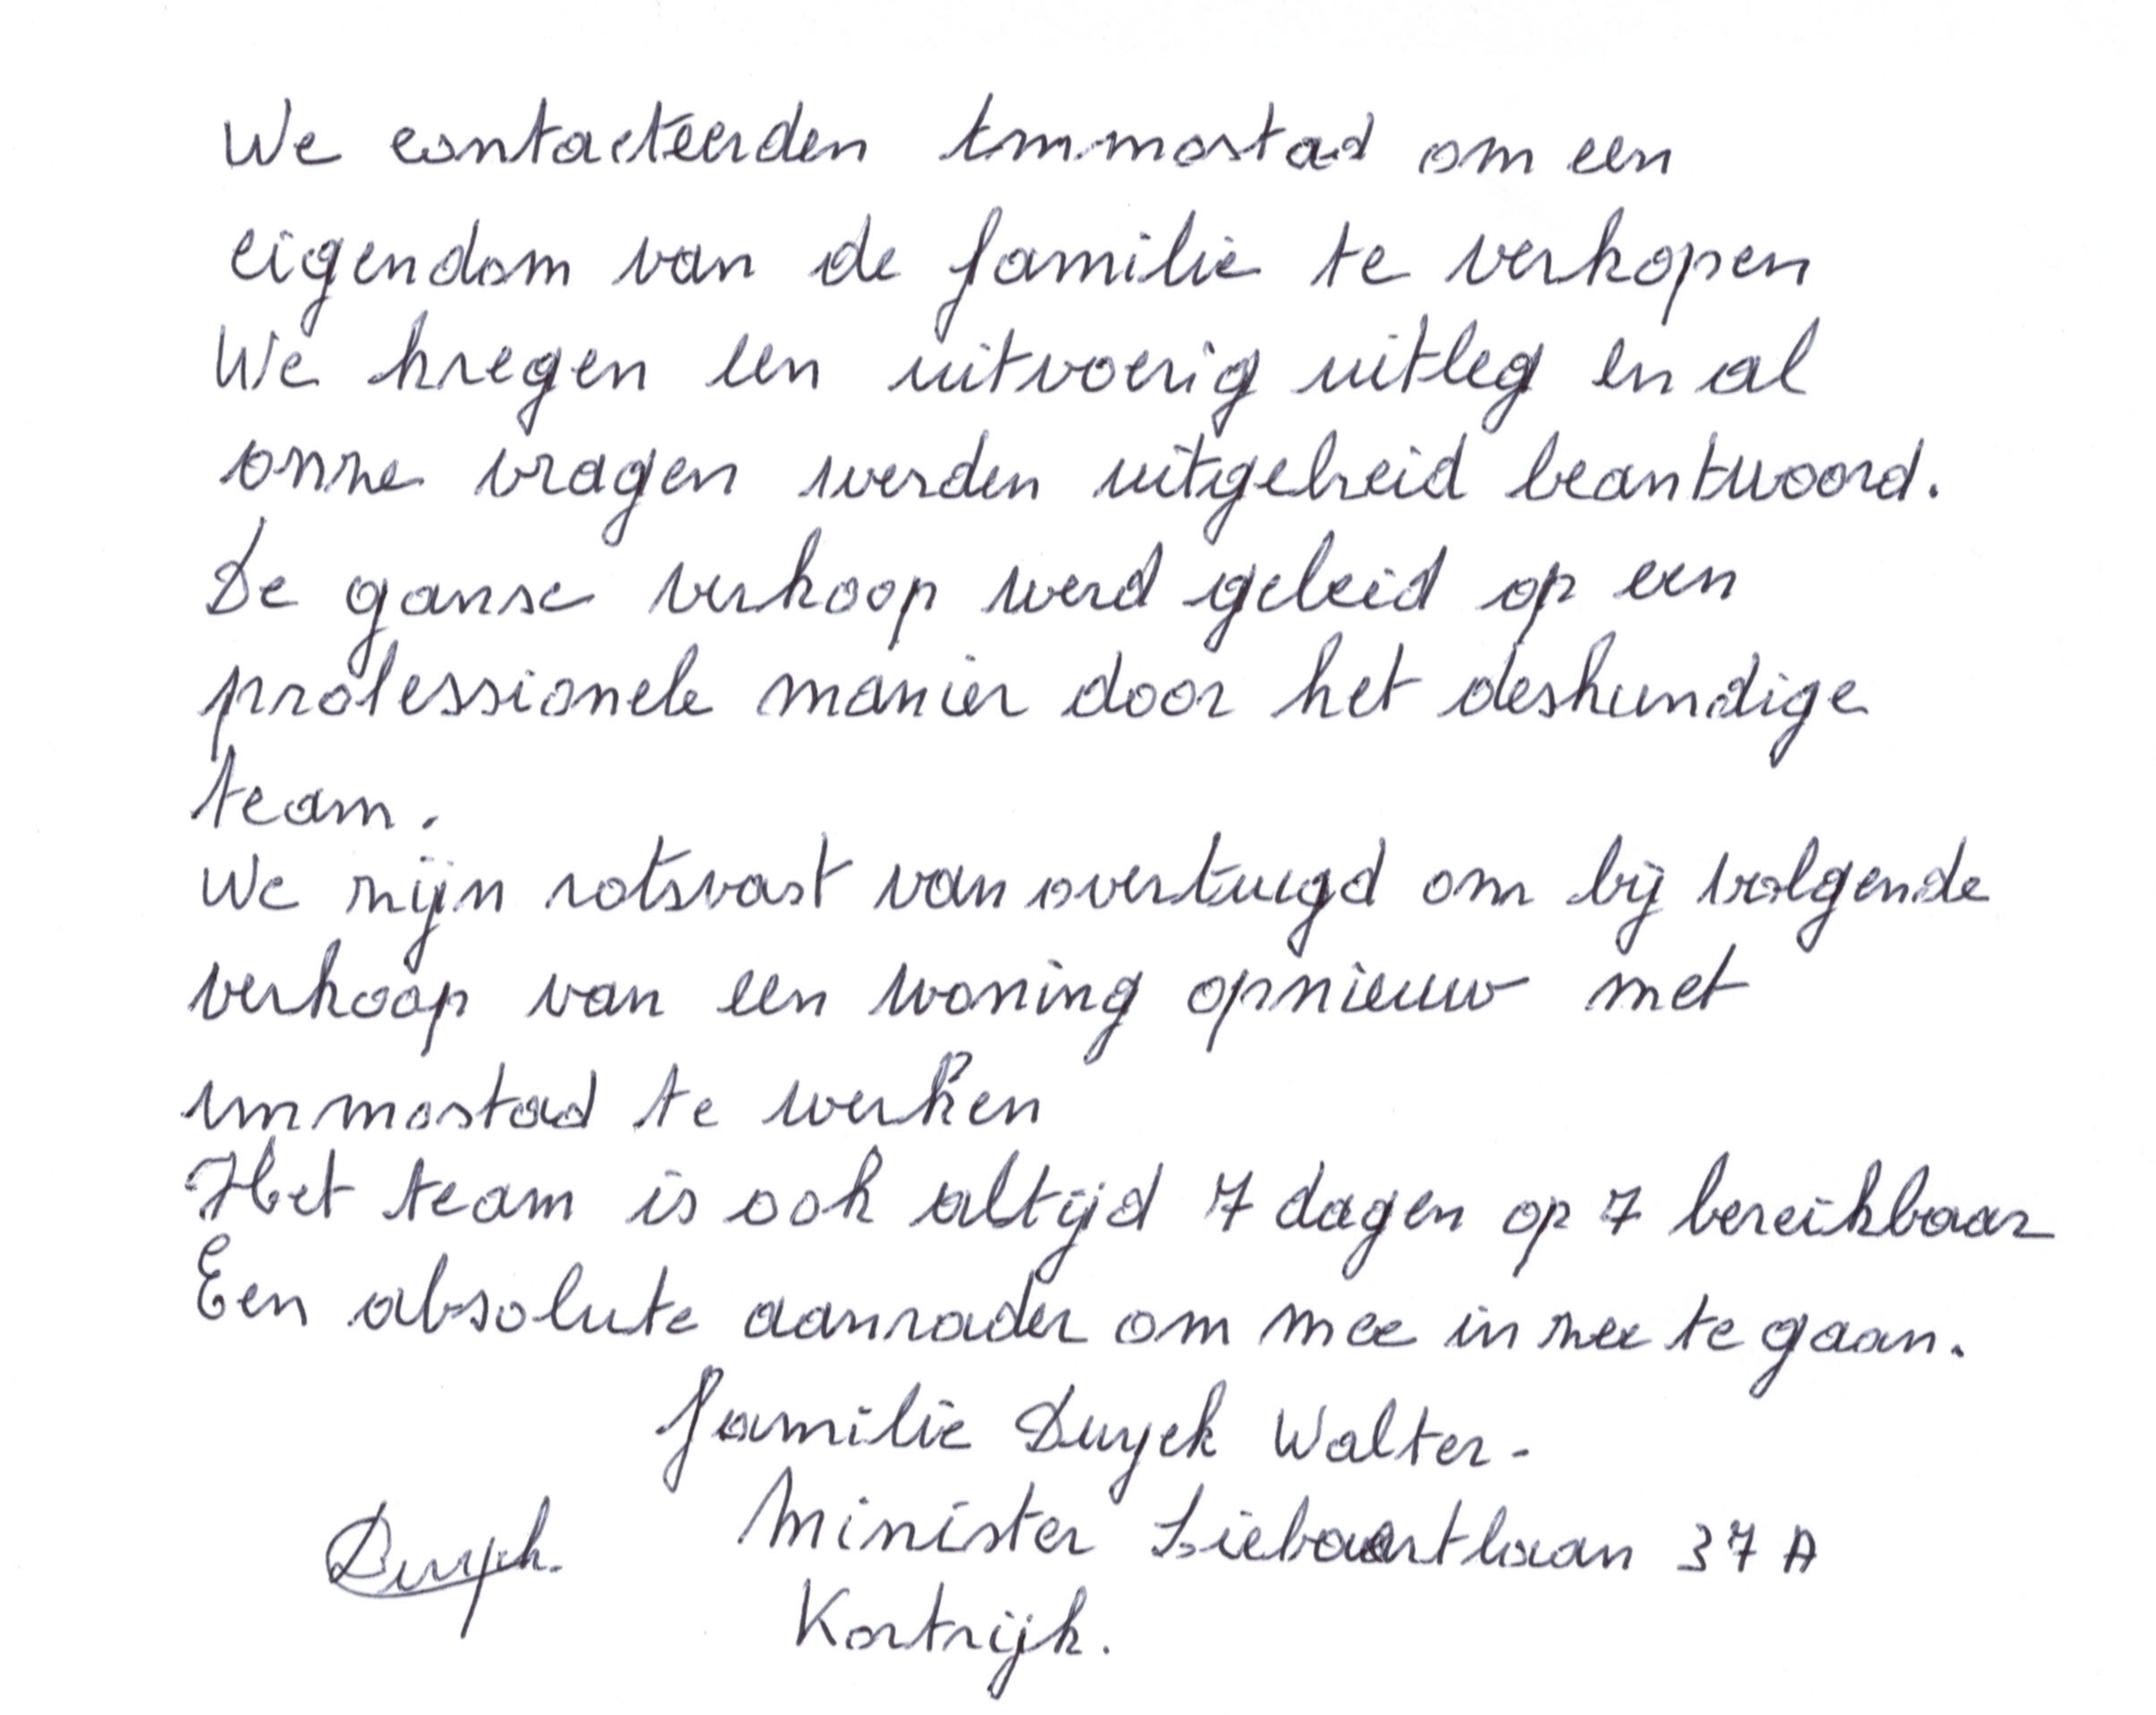 We contacteerden Immostad om een
eigendom van de familie te verkopen
We kregen een uitvoerig uitleg en al
onze vragen werden uitgebreid beantwoord.
De ganse verkoop werd geleid op een
professionele manier door het deskundige
team.
We zijn rotsvast van overtuigd om bij volgende
verkoop van een woning opnieuw met
immostad te werken
Het team is ook altijd 7 dagen op 7 bereikbaar
Een absolute aanrader om mee in zee te gaan.
familie Duyck Walter -
Minister Liebaertlaan 37 A
Duyck.
Kortrijk.